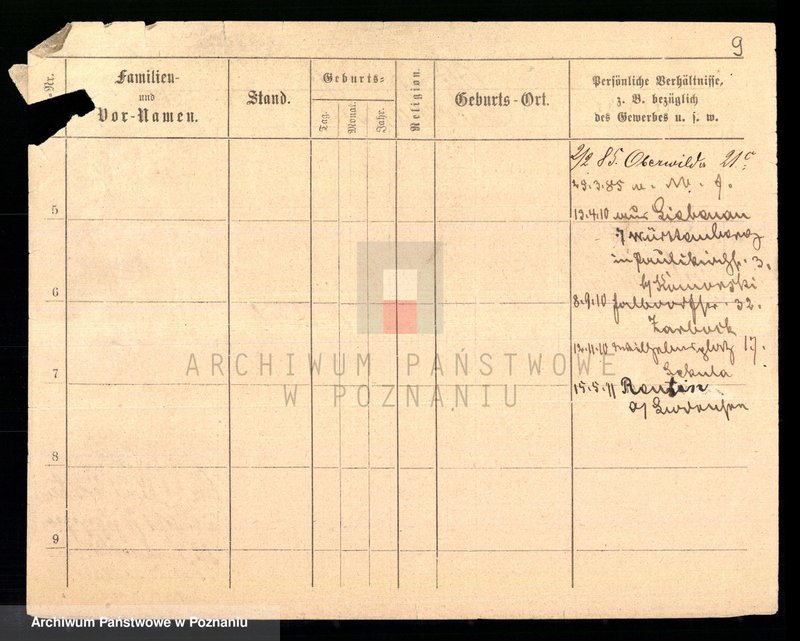 9
Nr.
Familien-
und
Vor-Namen.
Stand.
Geburts-
Tag.
Monat.
Jahr.
Religion.
Geburts-Ort.
Persönliche Verhältnisse,
z. B. bezüglich
des Gewerbes u. s. w.
2/2 85. Oberwilda 21c
29.3.85 u. M. f.
5
13.4.10 aus Liebenau
/ Württemberg
in Paulikirchstr. 3.
b/ Komorski
6
8.9.10 32.
Zarbock
12.11.10 Wilhelmsplatz 17.
Sekula
7
15.5.11
8
9
ARCHIWUM PAŃSTWOWE
W POZNANIU
Archiwum Państwowe w Poznaniu